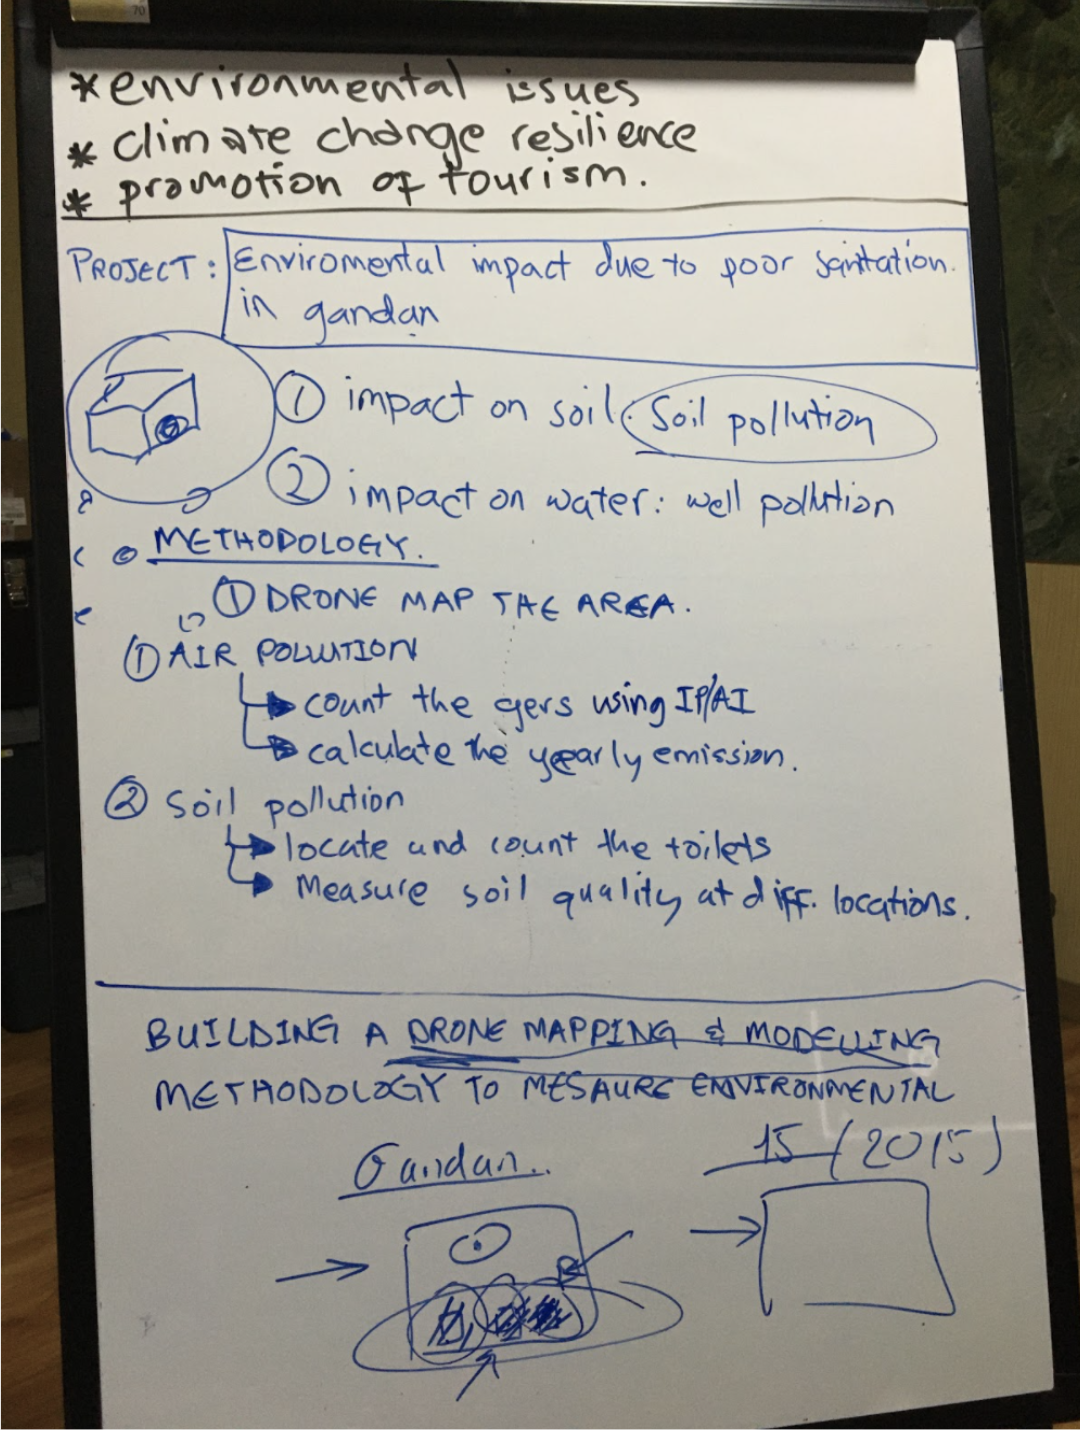 * environmental issues
* climate change resilience
* promotion of tourism.
PROJECT: Enviromental impact due to poor sanitation.
in gandan
① impact on soil: Soil pollution
② impact on water: well pollution
METHODOLOGY.
① DRONE MAP THE AREA.
① AIR POLLUTION
count the gers using IP/AI
calculate the yearly emission.
② Soil pollution
locate and count the toilets
Measure soil quality at diff. locations.
BUILDING A DRONE MAPPING & MODELLING
METHODOLOGY TO MESAURE ENVIRONMENTAL
Gandan..
15 (2015)